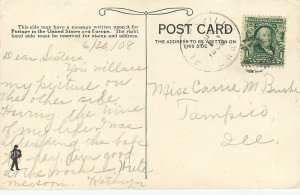 This side may have a message written upon it for
Postage in the United States and Europe. The right
hand side must be reserved for stamp and address.
POST CARD
THE ADDRESS TO BE WRITTEN ON
THIS SIDE
6/20/08
Dear Sisters
You will see
my picture on
the other side.
Having the time
of my life. I was
the
day. Am good
at the Write
me soon. Kathryn
Miss Carrie M. Burke
Tampico
Ill.